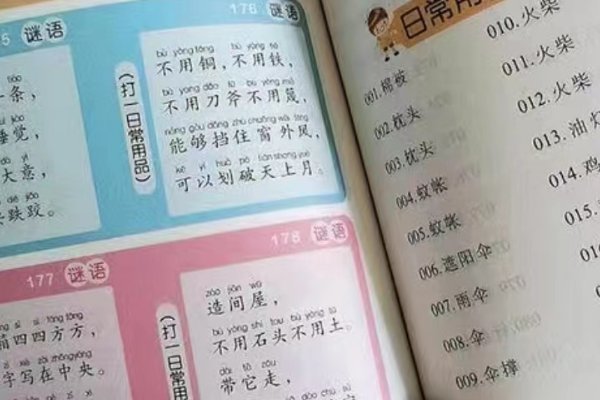 谜语
条，
觉，
大意，
跌跤。
176 谜语
（打一日常用品）
bù yòng tóng bù yòng tiě
不用铜，不用铁，
bù yòng dāo fǔ bù yòng miè
不用刀斧不用篾，
néng gòu dǎng zhù chuāng wài fēng
能够挡住窗外风，
kě yǐ huá pò tiān shang yuè
可以划破天上月。
177 谜语
四四方方，
字写在中央。
178 谜语
（打一日常用
zào jiān wū
造间屋，
bù yòng shí tou bù yòng tǔ
不用石头不用土。
dài tā zǒu
带它走，
日常用
001.棉被
002.枕头
003.枕头
004.蚊帐
005.蚊帐
006.遮阳伞
007.雨伞
008.伞
009.伞撑
010.火柴
011.火柴
012.火柴
013.油灯
014.鸡
015.